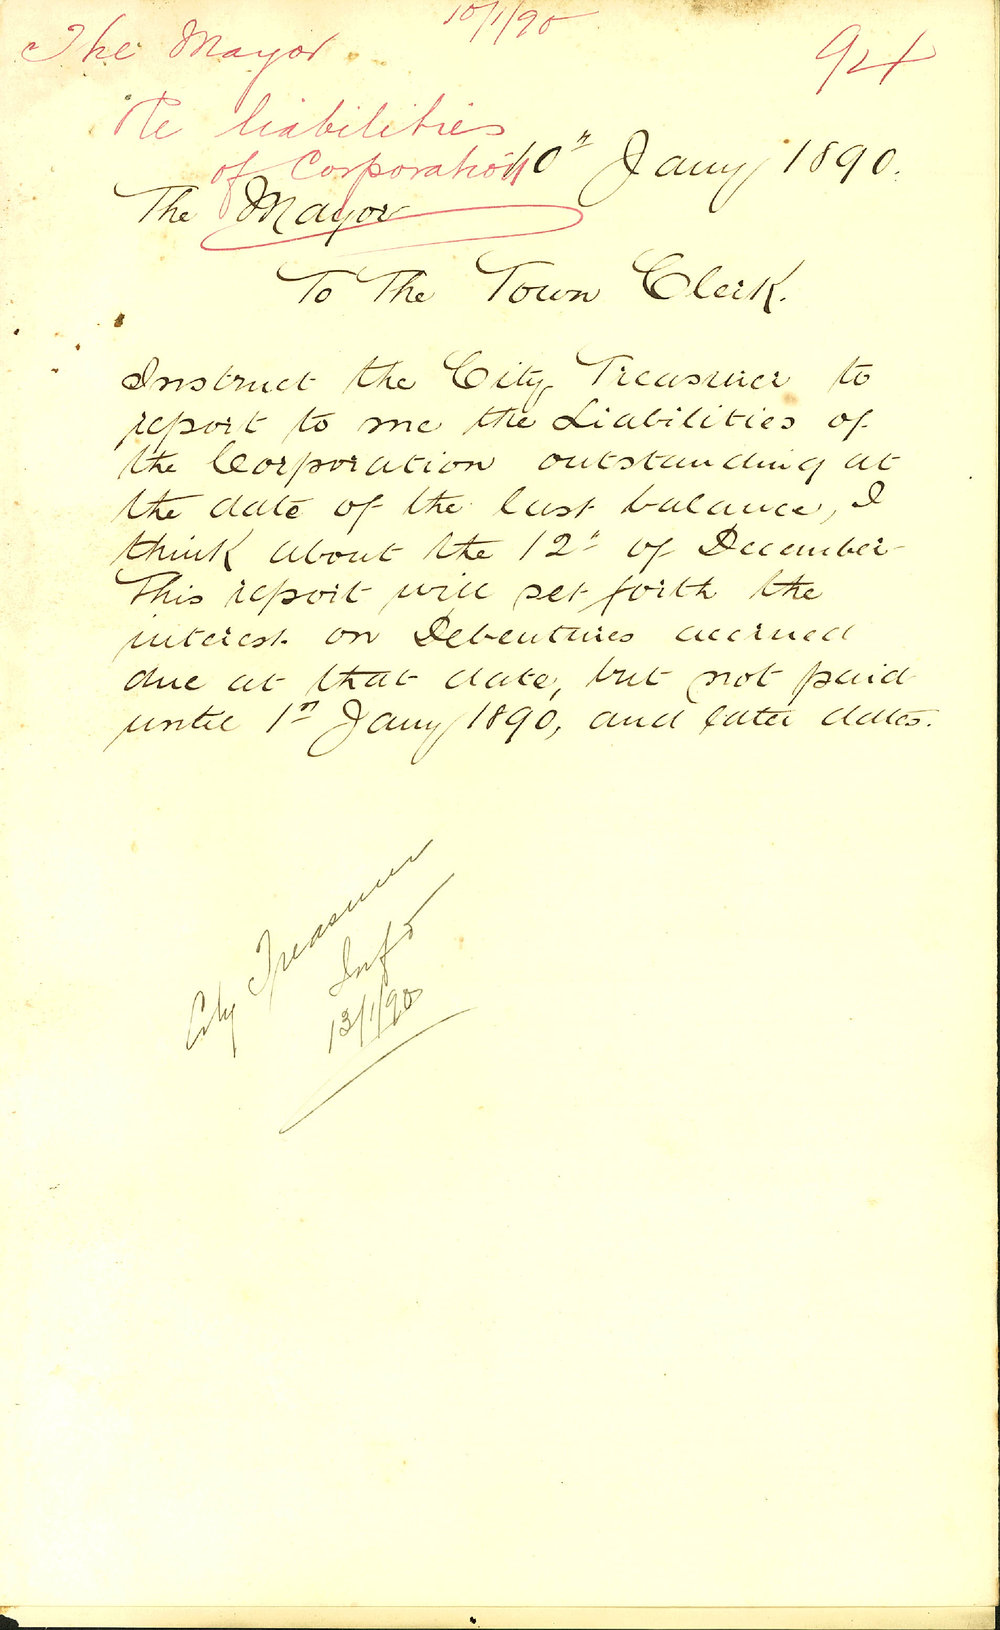 10/1/90
The Mayor
94
Re liabilities
of Corporation
10" Jany 1890.
The Mayor
To The Town Clerk.
Instruct the City Treasurer to
report to me the Liabilities of
the Corporation outstanding at
the date of the last balance, I
think about the 12" of December
This report will set forth the
interest on Debentures accrued
due at that date, but not paid
until 1" Jany 1890, and later dates.
City Treasurer
13/1/90